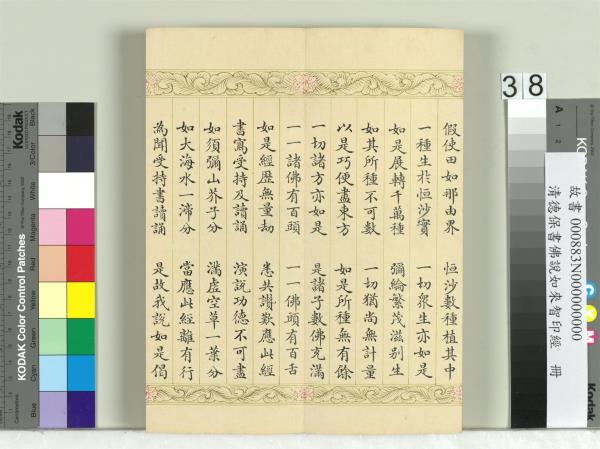 假使田如那由界 恒沙數種植其中
一種生於恒沙實 一切衆生亦如是
如是展轉千萬種 彌綸繁茂滋别生
如其所種不可數 一切猶尚無計量
以是巧便盡東方 如是所種無有餘
一切諸方亦如是 是諸子數佛充滿
一一諸佛有百頭 一一佛頭有百舌
如是經歷無量劫 悉共讚歎應此經
書寫受持及讀誦 演說功德不可盡
如須彌山芥子分 滿虛空草一葉分
如大海水一渧分 當應此經離有行
為聞受持書讀誦 是故我說如是偈
故書 000883N000000000
清德保書佛說如來智印經 冊
38
Kodak
KODAK Color Control Patches
Black
3/Color
White
Magenta
Red
Yellow
Green
Cyan
Blue
A 1 2
C
Y
M